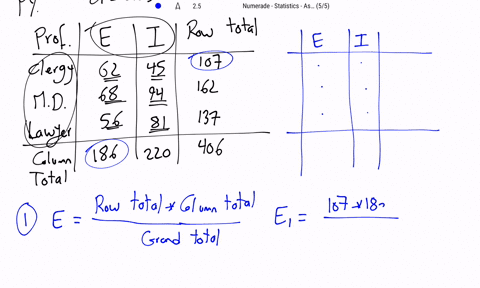 PY.
2.5 Numerade - Statistics - As... (5/5)
Prof. E I Row total
Clergy 62 45 107
M.D. 68 94 162
Lawyer 56 81 137
Column Total 186 220 406
E I
1 E = Row total * Column total / Grand total
E₁ = 107 * 18